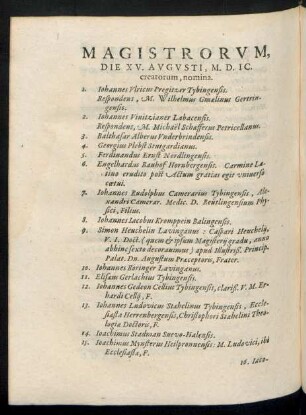 MAGISTRORVM,
DIE XV. AVGVSTI, M. D. IC.
creatorum, nomina.
1. Iohannes Vlricus Pregitzer Tybingensis.
Respondens, M. Wilhelmus Gmalinus Gertringensis.
2. Iohannes Vinitzianer Labacensis.
Respondens, M. Michaël Schafferus Petricellanus.
3. Balthasar Alberus Vnderbrindensis.
4. Georgius Plebst Stutgardianus.
5. Ferdinandus Ernst Nördlingensis.
6. Engelhardus Bauhof Hornbergensis. Carmine Latino
erudito post Actum gratias egit vniverso
cœtui.
7. Iohannes Rudolphus Camerarius Tybingensis, Alexandri
Camerar. Medic. D. Reutlingensium Physici,
Filius.
8. Iohannes Iacobus Kromppein Balingensis.
9. Simon Heuchelin Lavinganus: Caspari Heuchelij,
V. I. Doct. (quem & ipsum Magisterij gradu, anno
abhinc sexto decorauimus) apud Illustriss. Princip.
Palat. Dn. Augustum Præceptoru, Frater.
10. Iohannes Röringer Lavinganus.
11. Elisæus Gerlachius Tybingensis.
12. Iohannes Gedeon Cellius Tybingensis, clariss. V. M. Erhardi
Cellij, F.
13. Iohannes Ludovicus Stahelinus Tybingensis, Ecclesiasta
Herrenbergensis, Christophori Stahelini Theologiæ
Doctoris, F.
14. Ioachimus Stadman Suevo-Halensis.
15. Ioachimus Münsterus Heilpronnensis: M. Ludovici, ibi
Ecclesiastæ, F.
16. Iaco-